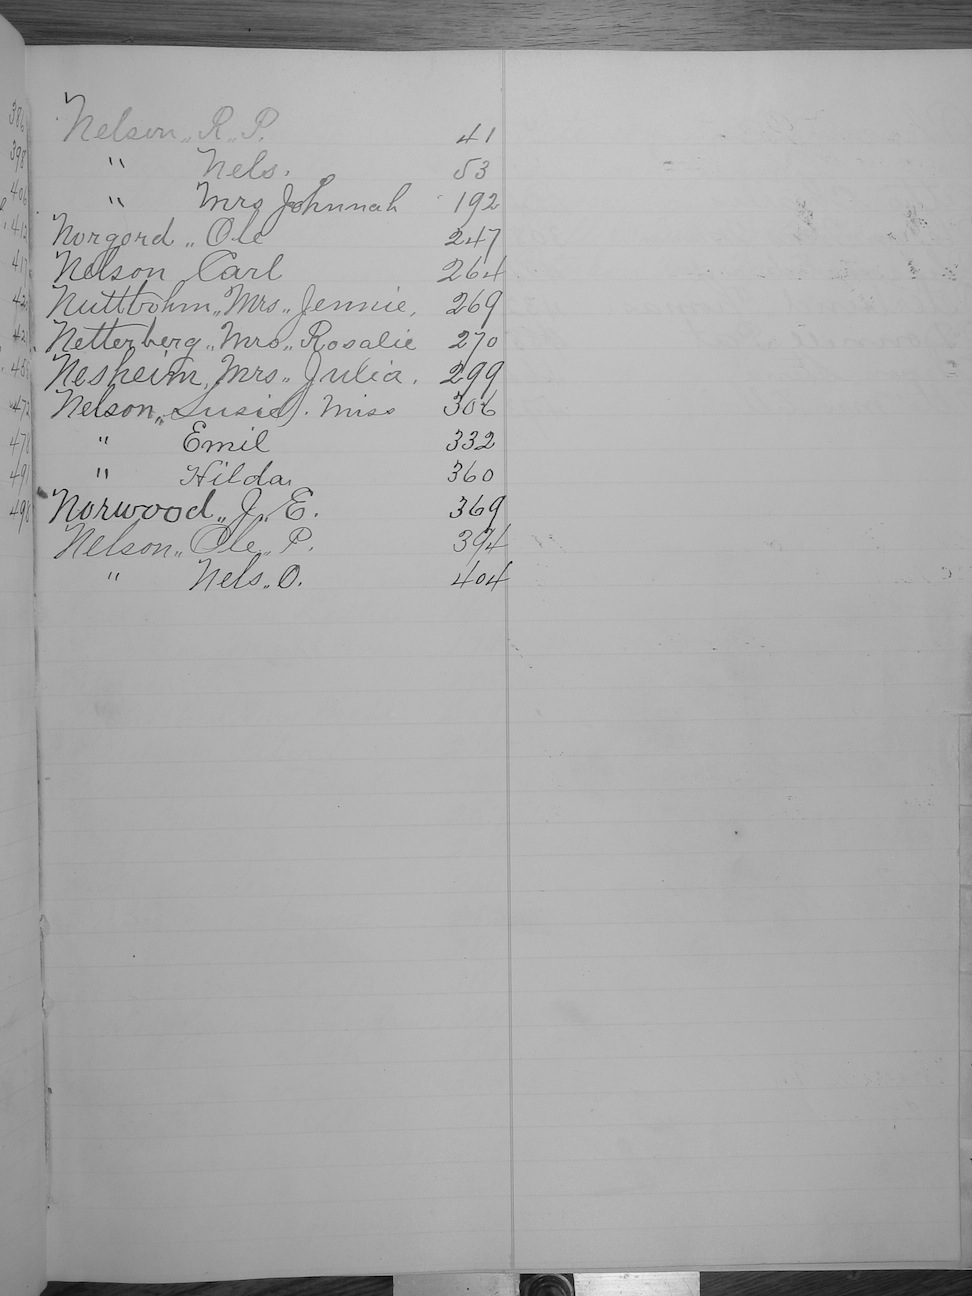 Nelson,, R,, P. 41
" Nels. 53
" Mrs Johnnah 192
Norgord ,, Ole 247
Nelson Carl 264
Nuttbohm,, Mrs,, Jennie, 269
Netterberg,, Mrs,, Rosalie 270
Nesheim, Mrs,, Julia. 299
Nelson,, Susie). Miss 306
" Emil 332
" Hilda, 360
Norwood,, J,, E. 369
Nelson,, Ole,, P. 394
" Nels,, O. 404